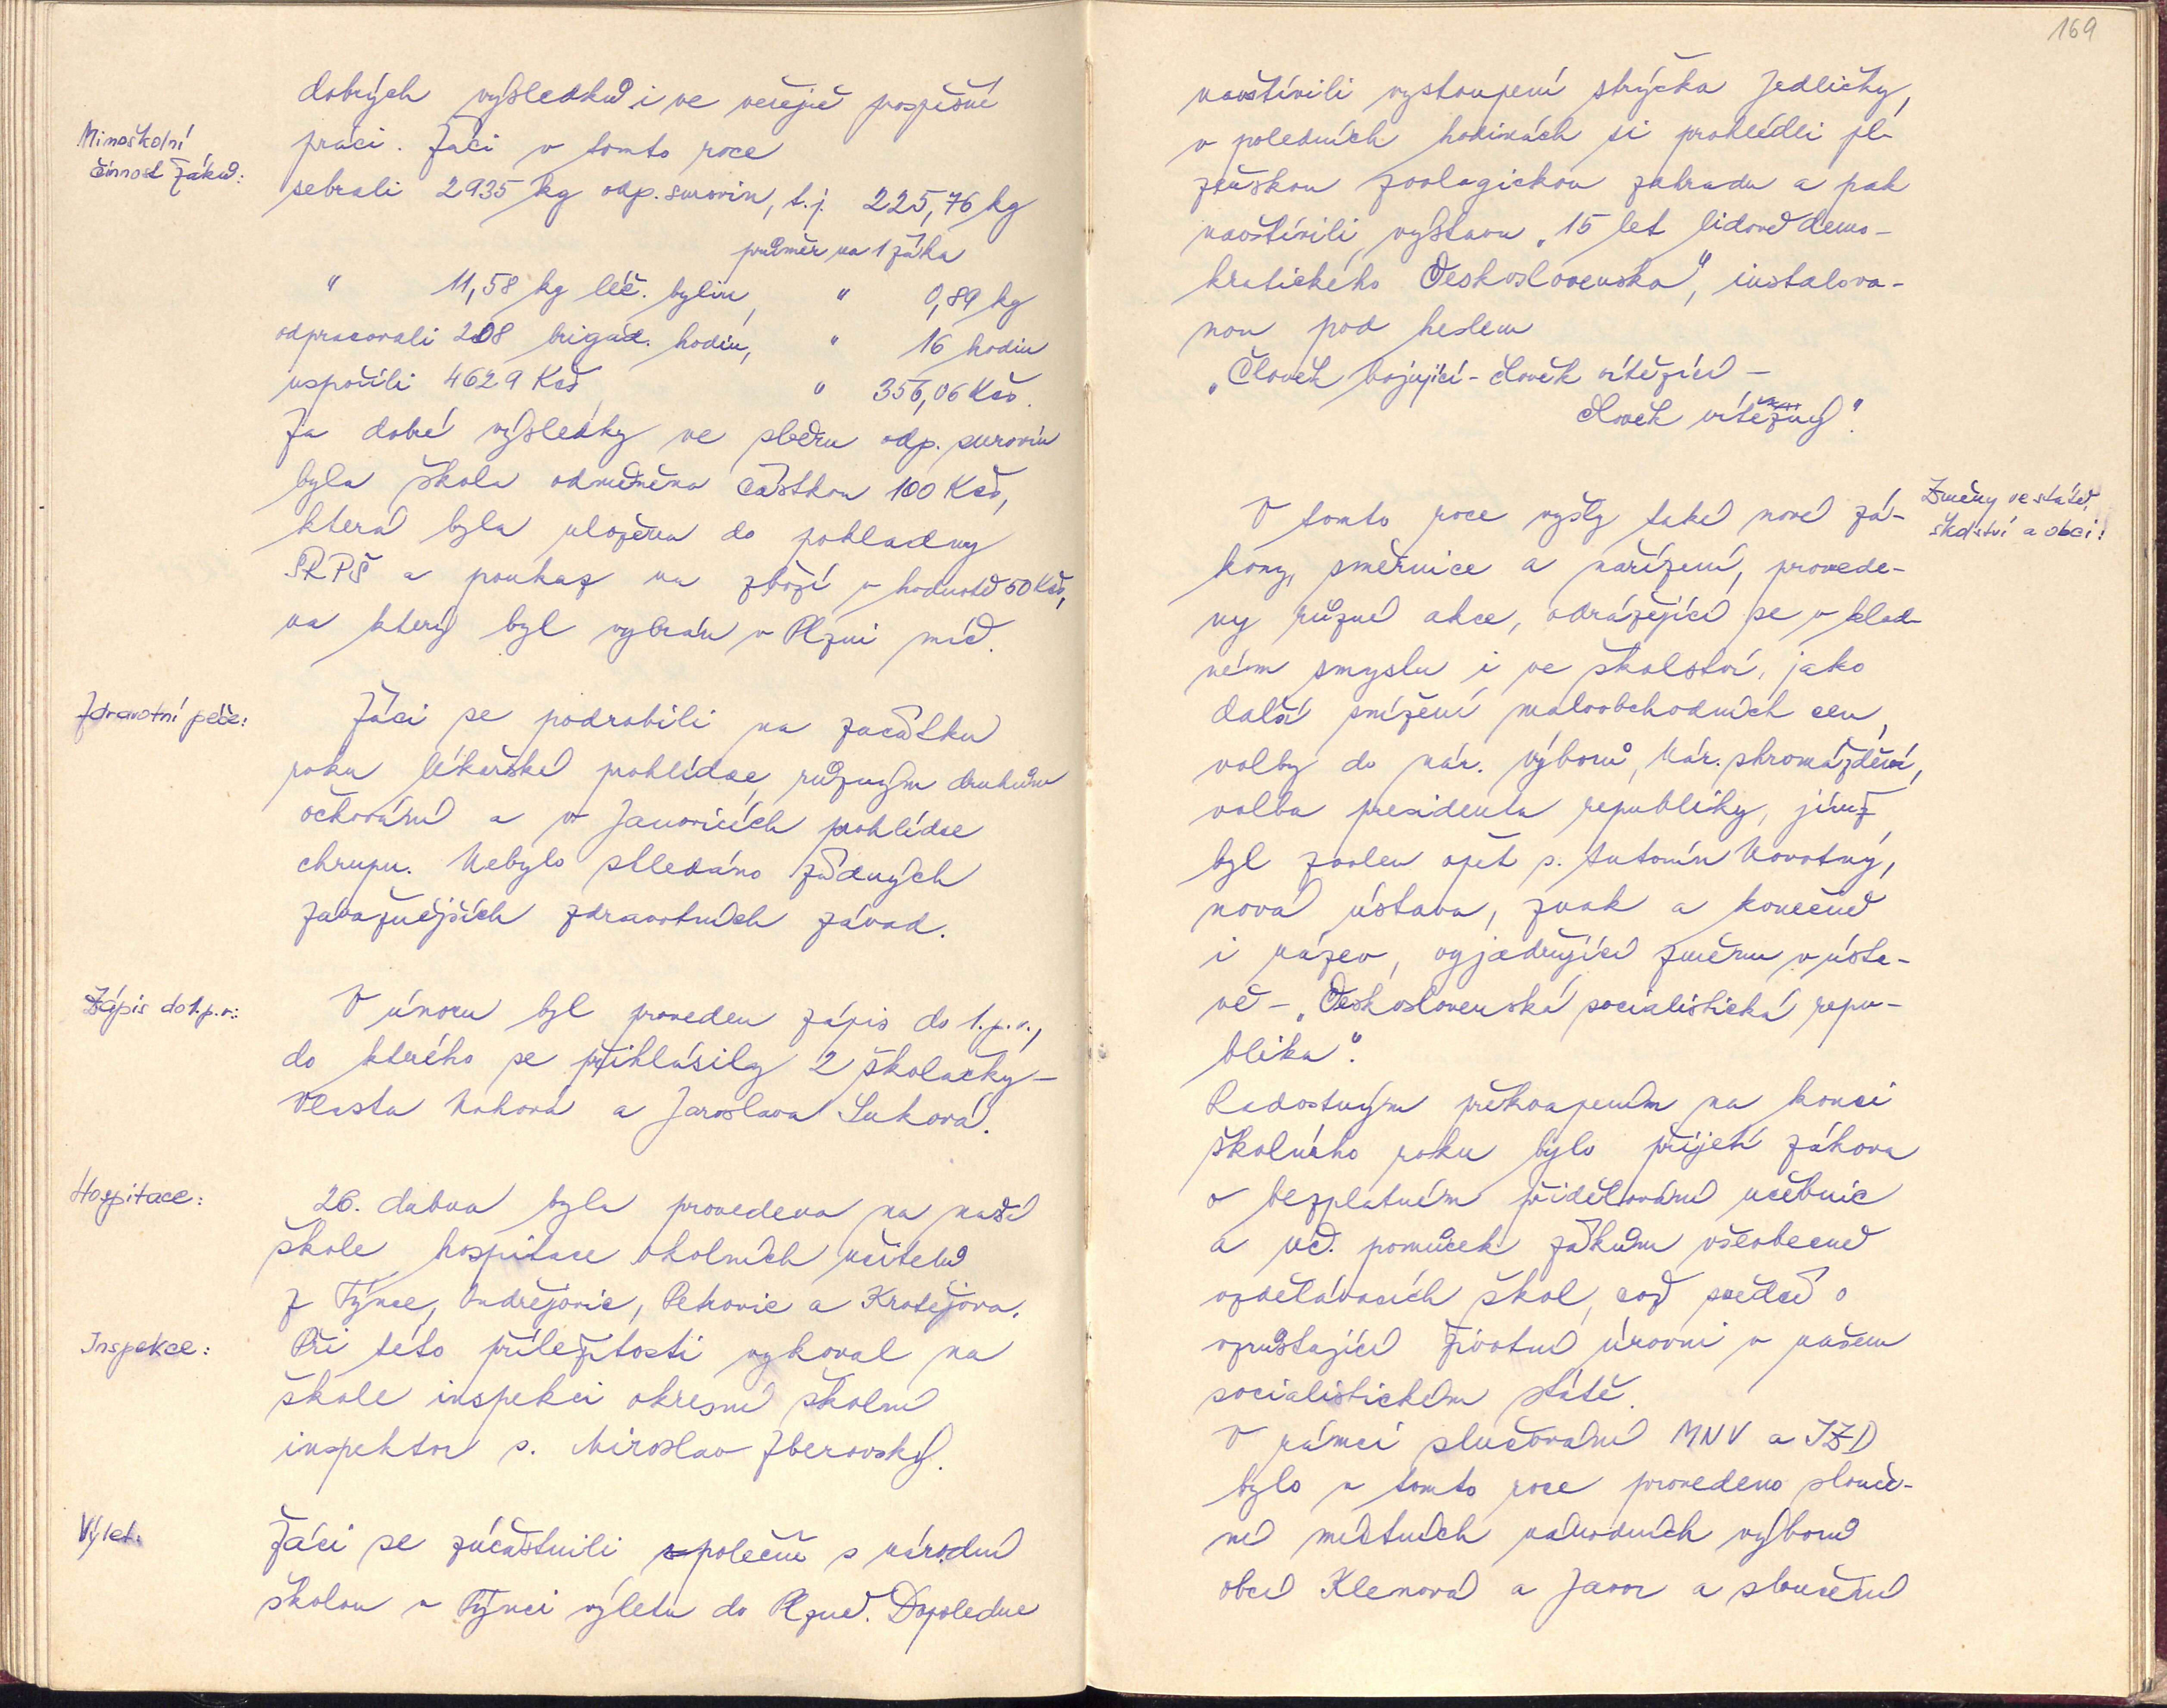 dobrých výsledků i ve veřejně prospěšné
Mimoškolní
činnost žáků:
práci. Žáci v tomto roce
sebrali 2935 kg odp. surovin, t.j. 225,76 kg
průměr na 1 žáka
" 11,58 kg léč. bylin, " 0,89 kg
odpracovali 208 brigád. hodin, " 16 hodin
uspořili 4629 Kčs, " 356,06 Kčs.
Za dobré výsledky ve sběru odp. surovin
byla škola odměněna částkou 100 Kčs,
která byla uložena do pokladny
SRPŠ a poukaz na zboží v hodnotě 50 Kčs,
na který byl vybrán v Plzni míč.
Zdravotní péče:
Žáci se podrobili na začátku
roku lékařské prohlídce, různým druhům
očkování a v Janovicích prohlídce
chrupu. Nebylo shledáno žádných
závažnějších zdravotních závad.
Zápis do 1.p.r.:
V únoru byl proveden zápis do 1.p.r.,
do kterého se přihlásily 2 školačky –
Vlasta Nohová a Jaroslava Suková.
Hospitace:
26. dubna byla provedena na naší
škole hospitace okolních učitelů
z Týnce, Ondřejovic, Petrovic a Kratějova.
Inspekce:
Při této příležitosti vykonal na
škole inspekci okresní školní
inspektor s. Miroslav Zberovský.
Výlet:
Žáci se zúčastnili společně s národní
školou v Týnci výletu do Plzně. Dopoledne
169
navštívili vystoupení strýčka Jedličky,
v poledních hodinách si prohlédli pl-
zeňskou zoologickou zahradu a pak
navštívili výstavu "15 let lidově demo-
kratického Československa", instalova-
nou pod heslem
"Člověk bojující – člověk vítězící –
člověk vítězný".
Změny ve státě,
školství a obci:
V tomto roce vyšly také nové zá-
kony, směrnice a nařízení, provede-
ny různé akce, odrážející se v klad-
ném smyslu i ve školství, jako
další snížení maloobchodních cen,
volby do nár. výborů, Nár. shromáždění,
volba presidenta republiky, jímž
byl zvolen opět s. Antonín Novotný,
nová ústava, znak a konečně
i název, vyjadřující změnu v ústa-
vě – "Československá socialistická repu-
blika".
Radostným překvapením na konci
školního roku bylo přijetí zákona
o bezplatném přidělování učebnic
a uč. pomůcek žákům všeobecně
vzdělávacích škol, což svědčí o
vzrůstající životní úrovni v našem
socialistickém státě.
V rámci slučování MNV a JZD
bylo v tomto roce provedeno slouče-
ní místních národních výborů
obcí Klenová a Javor a sloučení